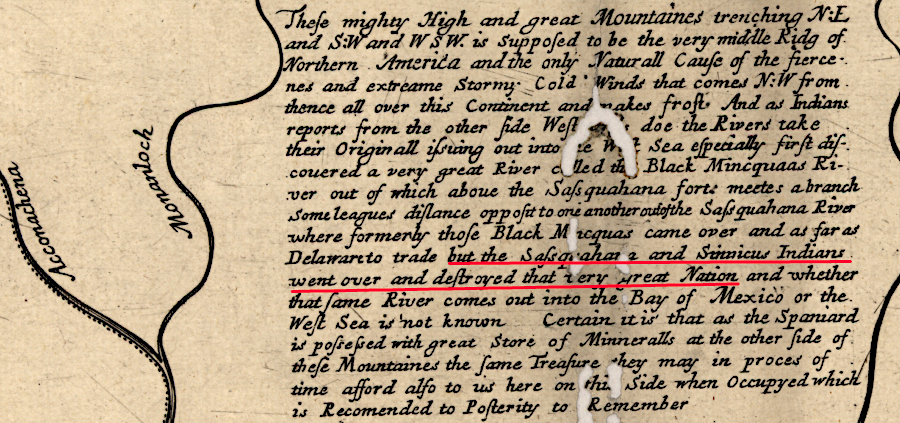 Theſe mighty High and great Mountaines trenching N:E
and S:W and W S W. is Suppoſed to be the very middle Ridg of
Northern America and the only Naturall Cauſe of the fierce-
nes and extreame Stormy Cold Winds that comes N:W from
thence all over this Continent and makes froſt. And as Indians
reports from the other ſide Weſt doe the Rivers take
their Originall iſsuing out into the Weſt Sea eſpecially firſt diſ-
couered a very great River called the Black Mincquaas Ri-
ver out of which aboue the Saſsquahana forte meetes a branch
Some leagues diſtance oppoſit to one another out of the Saſsquahana River
where formerly thoſe Black Mincquas came over and as far as
Delaware to trade but the Saſsquahana and Sinnicus Indians
went over and deſtroyed that very great Nation and whether
that ſame River comes out into the Bay of Mexico or the
Weſt Sea is not known Certain it is that as the Spaniard
is poſseſsed with great Store of Minneralls at the other ſide of
theſe Mountaines the ſame Treaſure they may in proces of
time afford alſo to us here on this Side when Occupyed which
is Recomended to Poſterity to Remember
Acconachena
Monanlock